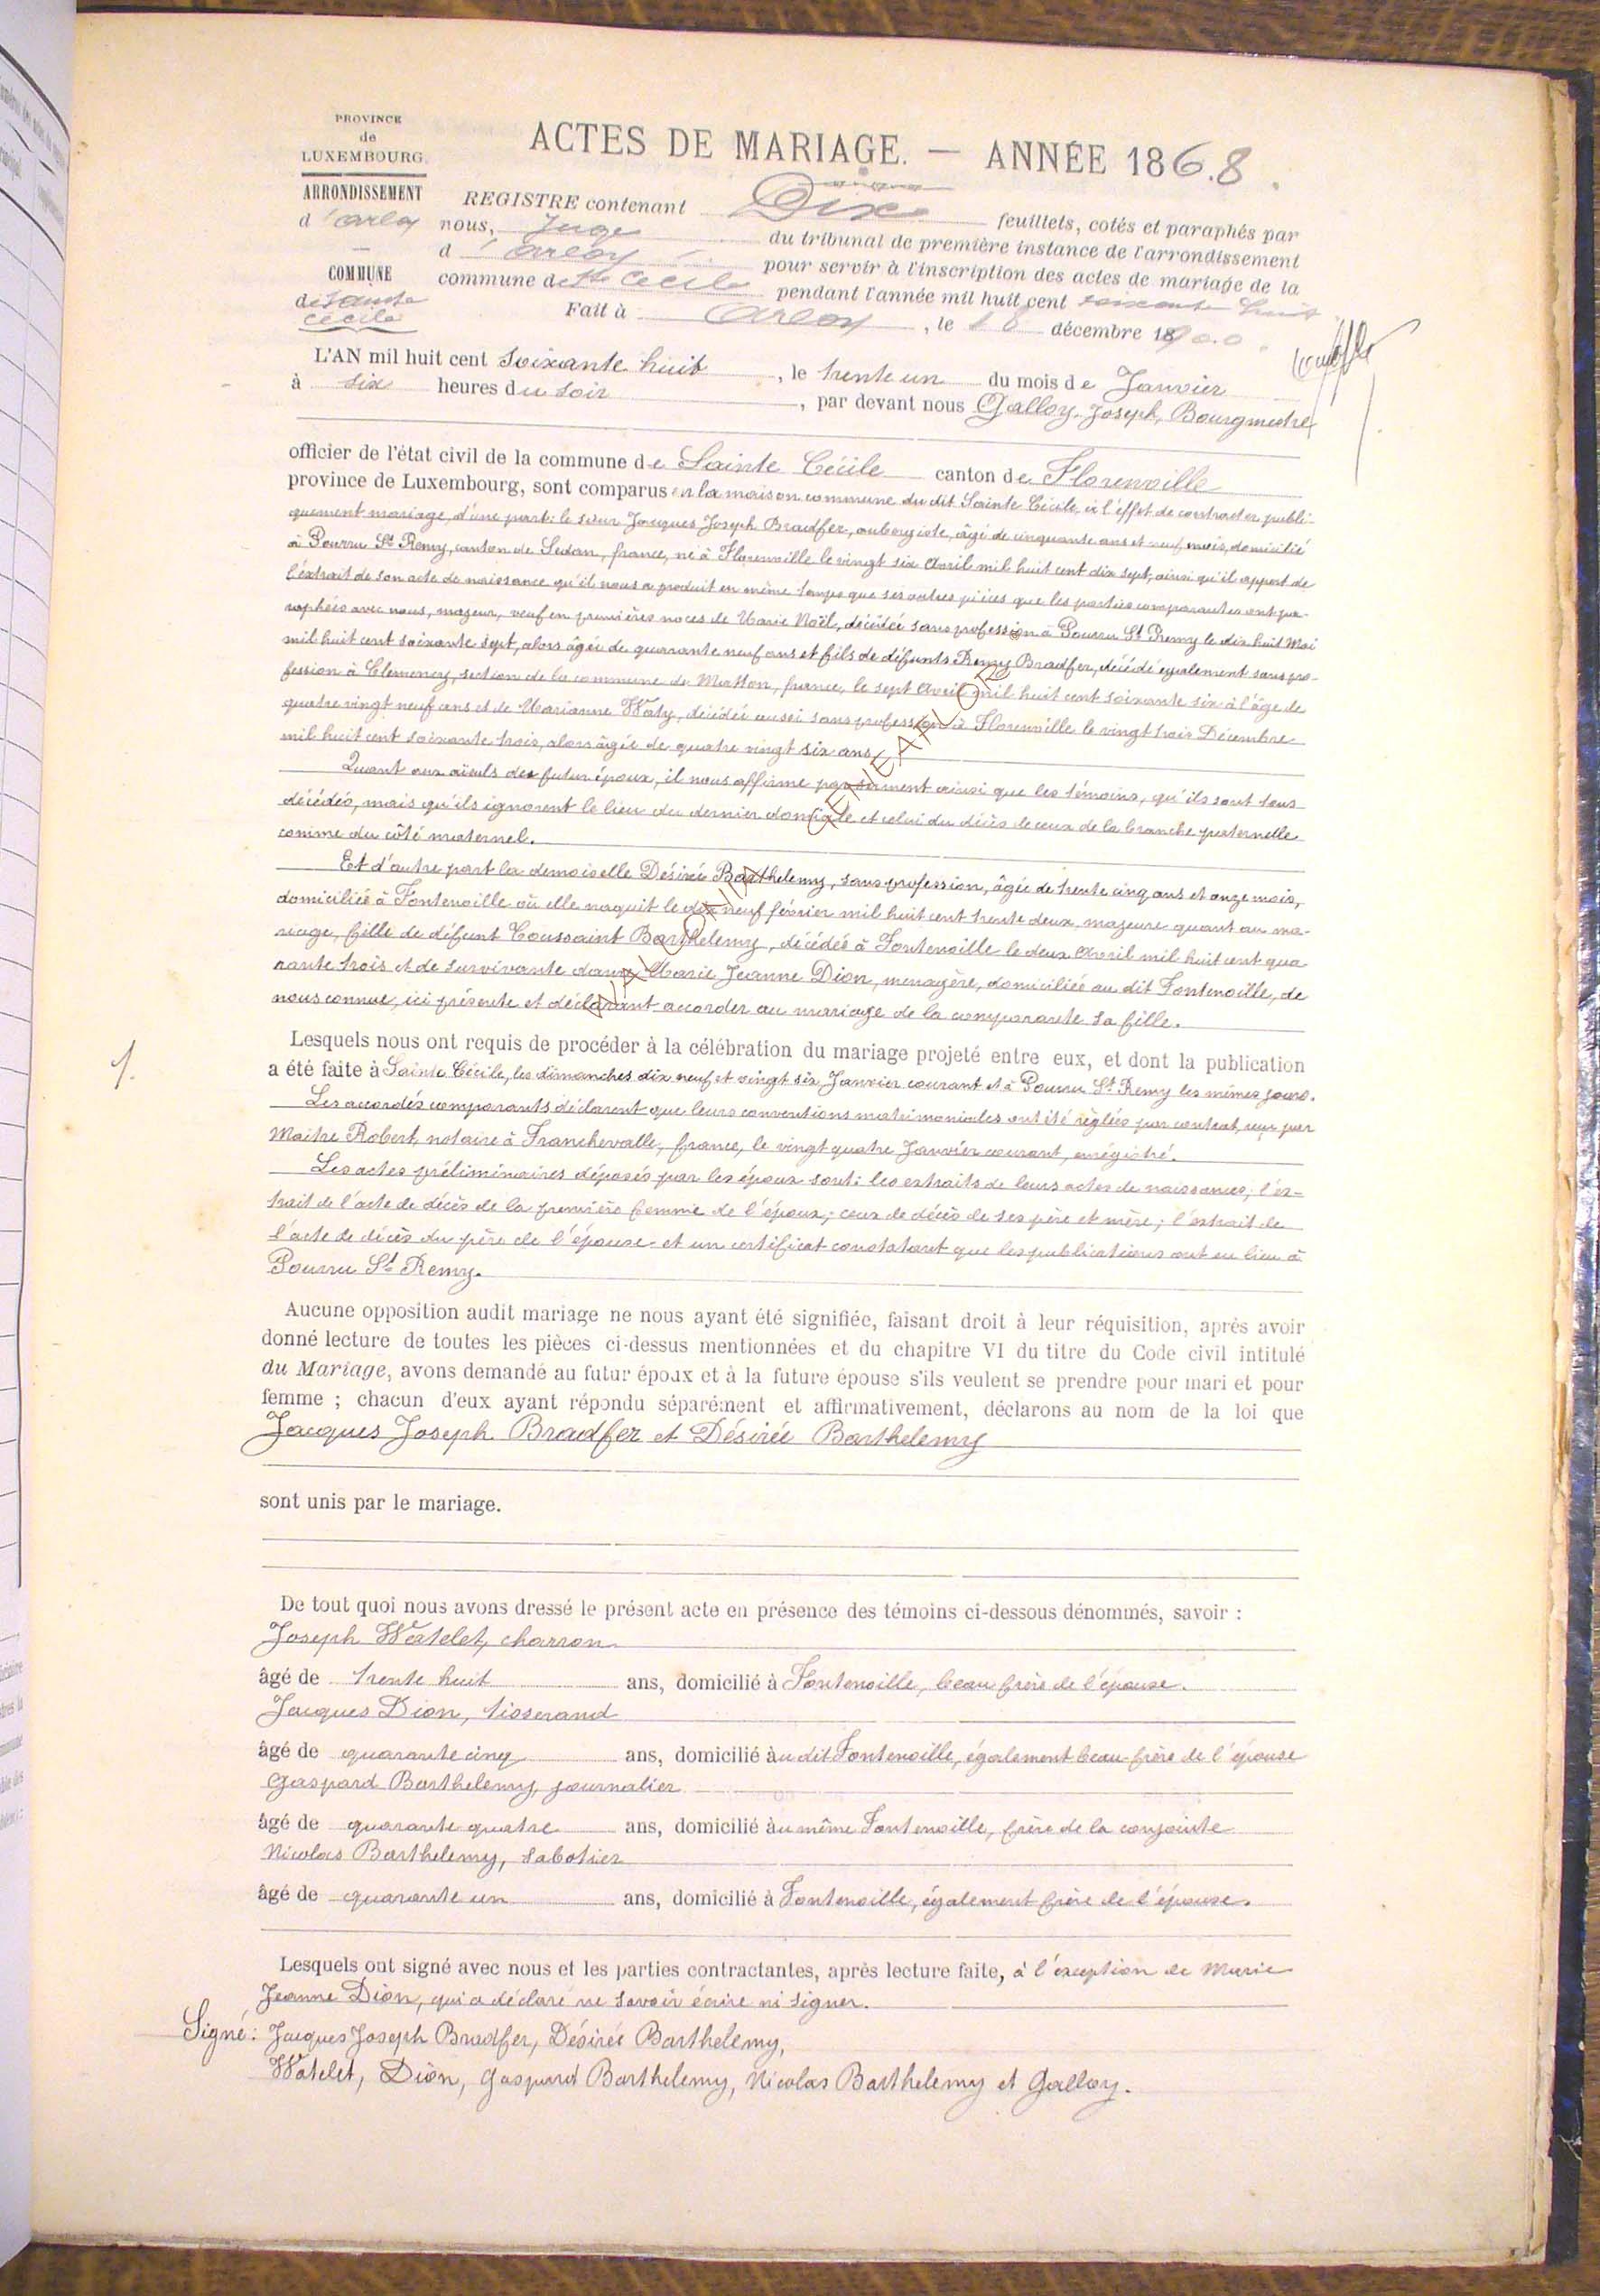 PROVINCE
de
LUXEMBOURG.
ARRONDISSEMENT
d'Arlon
COMMUNE
de Sainte
Cécile
ACTES DE MARIAGE. — ANNÉE 1868.
REGISTRE contenant Dix feuillets, cotés et paraphés par
nous, Juge du tribunal de première instance de l'arrondissement
d'Arlon pour servir à l'inscription des actes de mariage de la
commune de Ste Cécile pendant l'année mil huit cent soixante huit
Fait à Arlon, le 18 décembre 1900.
L'AN mil huit cent soixante huit, le trente un du mois de Janvier
à six heures du soir, par devant nous Galloy Joseph, Bourgmestre
officier de l'état civil de la commune de Sainte Cécile canton de Florenville
province de Luxembourg, sont comparus en la maison commune du dit Sainte Cécile, à l'effet de contracter publi-
quement mariage, d'une part: le sieur Jacques Joseph Bradfer, aubergiste, âgé de cinquante ans et neuf mois, domicilié
à Pourru St Remy, canton de Sedan, france, né à Florenville le vingt six Avril mil huit cent dix sept, ainsi qu'il appert de
l'extrait de son acte de naissance qu'il nous a produit en même temps que ses autres pièces que les parties comparantes ont pa-
raphées avec nous, majeur, veuf en premières noces de Marie Noël, décédée sans profession à Pourru St Remy le dix huit Mai
mil huit cent soixante sept, alors âgée de quarante neuf ans et fils de défunts Remy Bradfer, décédé également sans pro-
fession à Clemency, section de la commune de Matton, france, le sept Avril mil huit cent soixante six à l'âge de
quatre vingt neuf ans et de Marianne Waty, décédée aussi sans profession à Florenville le vingt trois Décembre
mil huit cent soixante trois, alors âgée de quatre vingt six ans.
Quant aux aïeuls du futur époux, il nous affirme par serment ainsi que les témoins, qu'ils sont tous
décédés, mais qu'ils ignorent le lieu du dernier domicile et celui du décès de ceux de la branche paternelle
comme du côté maternel.
Et d'autre part la demoiselle Désirée Barthelemy, sans profession, âgée de trente cinq ans et onze mois,
domiciliée à Fontenoille où elle naquit le dix neuf février mil huit cent trente deux, majeure quant au ma-
riage, fille de défunt Toussaint Barthelemy, décédé à Fontenoille le deux Avril mil huit cent qua
rante trois et de survivante dame Marie Jeanne Dion, menagère, domiciliée au dit Fontenoille, de
nous connue, ici présente et déclarant accorder au mariage de la comparante sa fille.
WALLONIA GENEALOR
Lesquels nous ont requis de procéder à la célébration du mariage projeté entre eux, et dont la publication
1.
a été faite à Sainte Cécile, les dimanches dix neuf et vingt six Janvier courant et à Pourru St Remy les mêmes jours.
Les accordés comparants déclarent que leurs conventions matrimoniales ont été réglées par contrat, reçu par
Maitre Robert, notaire à Francheval, france, le vingt quatre Janvier courant, enrégistré.
Les actes préliminaires déposés par les époux sont: les extraits de leurs actes de naissances; l'ex-
trait de l'acte de décès de la première femme de l'époux; ceux de décès de ses père et mère; l'extrait de
l'acte de décès du père de l'épouse et un certificat constatant que les publications ont eu lieu à
Pourru St Remy.
Aucune opposition audit mariage ne nous ayant été signifiée, faisant droit à leur réquisition, après avoir
donné lecture de toutes les pièces ci-dessus mentionnées et du chapitre VI du titre du Code civil intitulé
du Mariage, avons demandé au futur époux et à la future épouse s'ils veulent se prendre pour mari et pour
femme ; chacun d'eux ayant répondu séparément et affirmativement, déclarons au nom de la loi que
Jacques Joseph Bradfer et Désirée Barthelemy
sont unis par le mariage.
De tout quoi nous avons dressé le présent acte en présence des témoins ci-dessous dénommés, savoir :
Joseph Watelet, charron
âgé de trente huit ans, domicilié à Fontenoille, beau frère de l'épouse.
Jacques Dion, tisserand
âgé de quarante cinq ans, domicilié au dit Fontenoille, également beau-frère de l'épouse
Gaspard Barthelemy, journalier
âgé de quarante quatre ans, domicilié au même Fontenoille, frère de la conjointe
Nicolas Barthelemy, sabotier
âgé de quarante un ans, domicilié à Fontenoille, également frère de l'épouse.
Lesquels ont signé avec nous et les parties contractantes, après lecture faite, à l'exception de Marie
Jeanne Dion, qui a déclaré ne savoir écrire ni signer.
Signé: Jacques Joseph Bradfer, Désirée Barthelemy,
Watelet, Dion, Gaspard Barthelemy, Nicolas Barthelemy et Galloy.